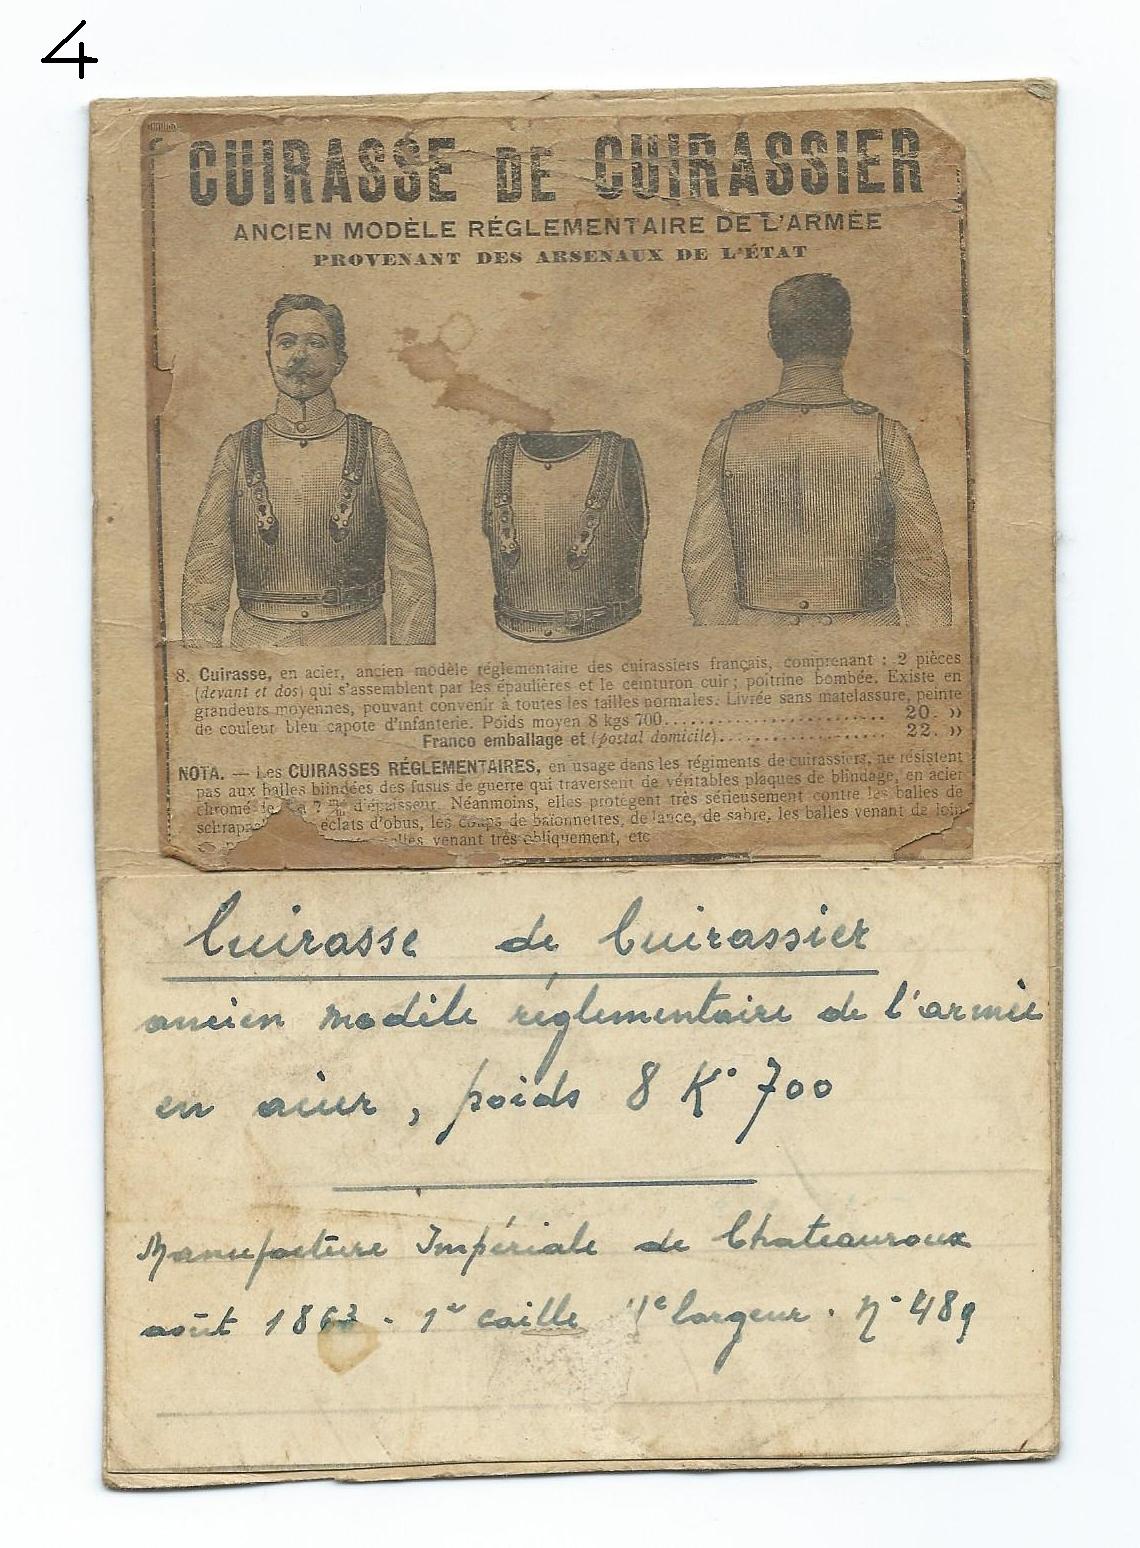 4
CUIRASSE DE CUIRASSIER
ANCIEN MODÈLE RÉGLEMENTAIRE DE L'ARMÉE
PROVENANT DES ARSENAUX DE L'ÉTAT
8. Cuirasse, en acier, ancien modèle réglementaire des cuirassiers français, comprenant : 2 pièces
(devant et dos) qui s'assemblent par les épaulières et le ceinturon cuir ; poitrine bombée. Existe en
grandeurs moyennes, pouvant convenir à toutes les tailles normales. Livrée sans matelassure, peinte
de couleur bleu capote d'infanterie. Poids moyen 8 kgs 700........................ 20. »
Franco emballage et (postal domicile)................... 22. »
NOTA. — Les CUIRASSES RÉGLEMENTAIRES, en usage dans les régiments de cuirassiers, ne résistent
pas aux balles blindées des fusus de guerre qui traversent de véritables plaques de blindage, en acier
chromé de 7 m/m d'épaisseur. Néanmoins, elles protègent très sérieusement contre les balles de
schrapn éclats d'obus, les coups de baïonnettes, de lance, de sabre, les balles venant de loin
venant très obliquement, etc
Cuirasse de Cuirassier
ancien modèle réglementaire de l'armée
en acier, poids 8 K° 700
Manufacture Impériale de Chateauroux
août 1863 - 1re caille largeur. N° 489